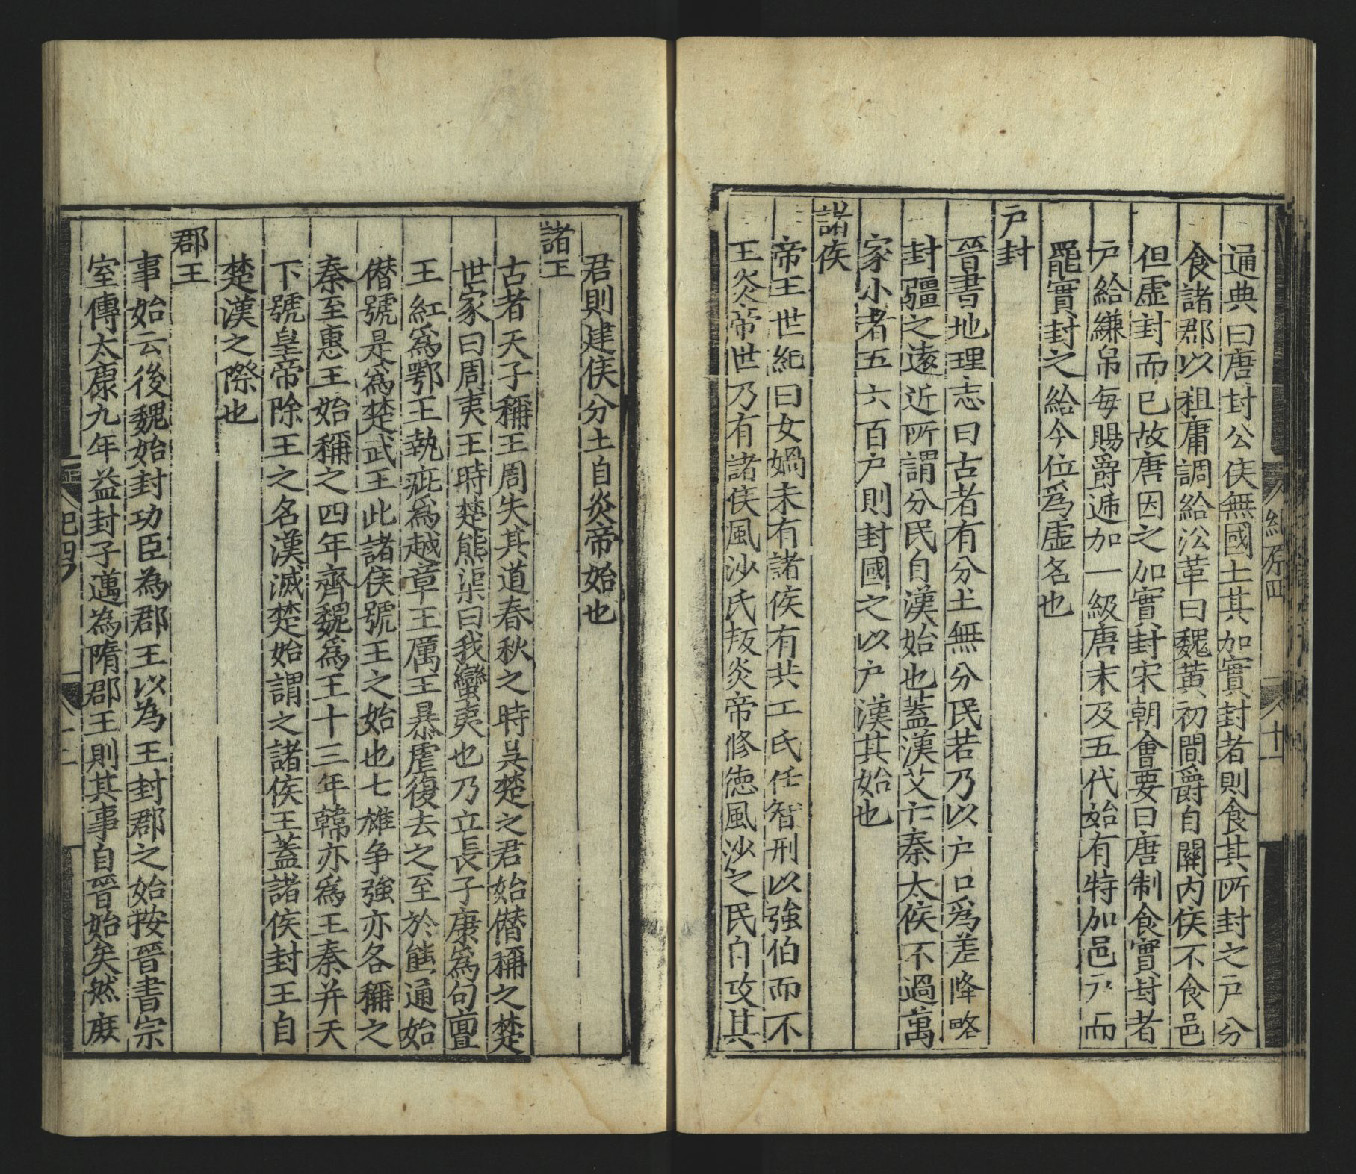 通典曰唐封公侯無國土其加實封者則食其所封之戶分
食諸郡以租庸調給㳂革曰魏黃初間爵自關內侯不食邑
但虛封而已故唐因之加實封宋朝會要曰唐制食實封者
戶給縑帛每賜爵遞加一級唐末及五代始有特加邑戶而
罷實封之給今位爲虛名也
戶封
晉書地理志曰古者有分土無分民若乃以戶口爲差降略
封疆之遠近所謂分民自漢始也蓋漢艾亡秦太侯不過萬
家小者五六百戶則封國之以戶漢其始也
諸侯
帝王世紀曰女媧未有諸侯有共工氏任智刑以強伯而不
王炎帝世乃有諸侯風沙氏叛炎帝修德風沙之民自攻其
君則建侯分土自炎帝始也
諸王
古者天子稱王周失其道春秋之時吳楚之君始僭稱之楚
世家曰周夷王時楚熊渠曰我蠻夷也乃立長子康爲句亶
王紅爲鄂王執疵爲越章王厲王暴虐復去之至於熊通始
僭號是爲楚武王此諸侯號王之始也七雄争強亦各稱之
秦至惠王始稱之四年齊魏爲王十三年韓亦爲王秦并天
下號皇帝除王之名漢滅楚始謂之諸侯王蓋諸侯封王自
楚漢之際也
郡王
事始云後魏始封功臣為郡王以為王封郡之始按晉書宗
室傳太康九年益封子邁為隋郡王則其事自晉始矣然庶
紀四